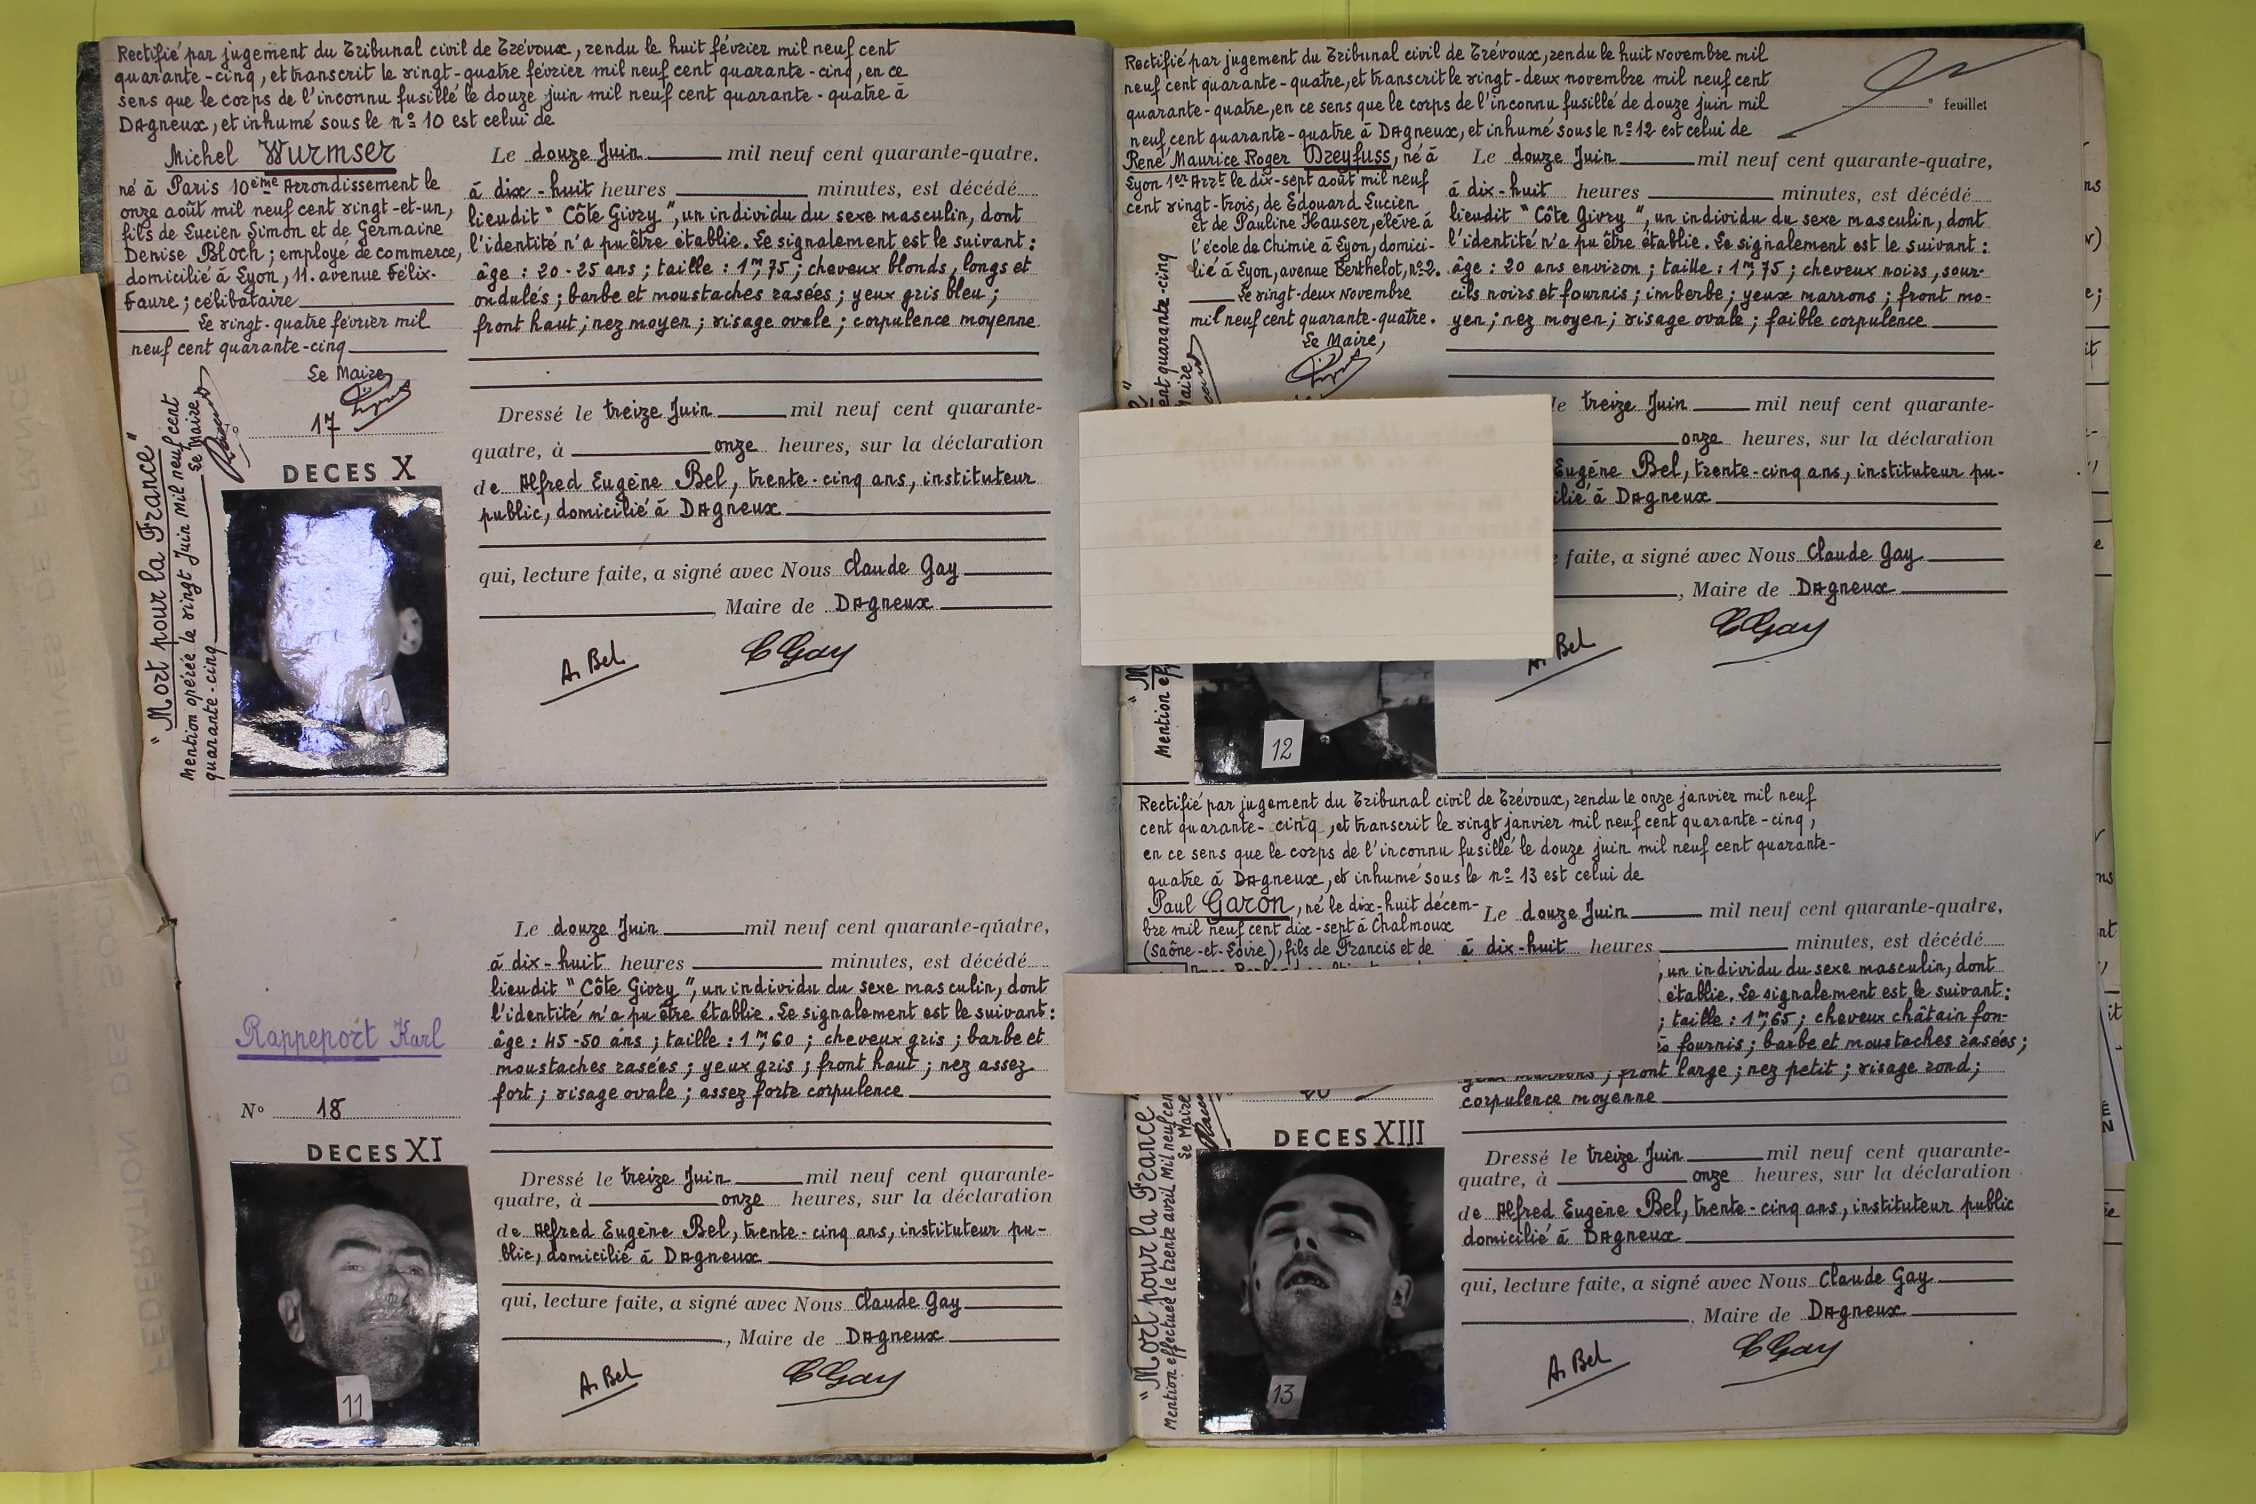 Rectifié par jugement du Tribunal civil de Trévoux, rendu le huit février mil neuf cent
quarante-cinq, et transcrit le vingt-quatre février mil neuf cent quarante-cinq, en ce
sens que le corps de l'inconnu fusillé le douze juin mil neuf cent quarante-quatre à
Dagneux, et inhumé sous le nº 10 est celui de
Michel Wurmser
né à Paris 10ème Arrondissement le
onze août mil neuf cent vingt-et-un,
fils de Lucien Simon et de Germaine
Denise Bloch; employé de commerce,
domicilié à Lyon, 11. avenue Félix-
Faure; célibataire
Le vingt-quatre février mil
neuf cent quarante-cinq
Le Maire,
17
DECES X
"Mort pour la France"
Mention opérée le vingt Juin mil neuf cent
quarante-cinq Le Maire
Le douze Juin mil neuf cent quarante-quatre.
à dix-huit heures minutes, est décédé
lieudit "Côte Givry", un individu du sexe masculin, dont
l'identité n'a pu être établie. Le signalement est le suivant:
âge : 20-25 ans ; taille : 1m,75 ; cheveux blonds, longs et
ondulés ; barbe et moustaches rasées ; yeux gris bleu ;
front haut ; nez moyen ; visage ovale ; corpulence moyenne
Dressé le treize Juin mil neuf cent quarante-
quatre, à onze heures, sur la déclaration
de Alfred Eugène Bel, trente-cinq ans, instituteur
public, domicilié à Dagneux
qui, lecture faite, a signé avec Nous Claude Gay
, Maire de Dagneux
A. Bel
C Gay
Rappeport Karl
Nº 18
DECES XI
11
Le douze Juin mil neuf cent quarante-quatre,
à dix-huit heures minutes, est décédé
lieudit "Côte Givry", un individu du sexe masculin, dont
l'identité n'a pu être établie. Le signalement est le suivant:
âge : 45-50 ans ; taille : 1m,60 ; cheveux gris ; barbe et
moustaches rasées ; yeux gris ; front haut ; nez assez
fort ; visage ovale ; assez forte corpulence
Dressé le treize Juin mil neuf cent quarante-
quatre, à onze heures, sur la déclaration
de Alfred Eugène Bel, trente-cinq ans, instituteur pu-
blic, domicilié à Dagneux
qui, lecture faite, a signé avec Nous Claude Gay
, Maire de Dagneux
A. Bel
C Gay
Rectifié par jugement du Tribunal civil de Trévoux, rendu le huit novembre mil
neuf cent quarante-quatre, et transcrit le vingt-deux novembre mil neuf cent
quarante-quatre, en ce sens que le corps de l'inconnu fusillé de douze juin mil
neuf cent quarante-quatre à Dagneux, et inhumé sous le nº 12 est celui de
º feuillet
René Maurice Roger Dreyfuss, né à
Lyon 1er Arrt le dix-sept août mil neuf
cent vingt-trois, de Edouard Lucien
et de Pauline Hauser, élève à
l'école de Chimie à Lyon, domici-
lié à Lyon, avenue Berthelot, nº 2.
Le vingt-deux novembre
mil neuf cent quarante-quatre.
Le Maire,
Mention
ent quarante-cinq
Maire
12
Le douze Juin mil neuf cent quarante-quatre,
à dix-huit heures minutes, est décédé
lieudit "Côte Givry", un individu du sexe masculin, dont
l'identité n'a pu être établie. Le signalement est le suivant:
âge : 20 ans environ ; taille : 1m,75 ; cheveux noirs, sour-
cils noirs et fournis ; imberbe ; yeux marrons ; front mo-
yen ; nez moyen ; visage ovale ; faible corpulence
le treize Juin mil neuf cent quarante-
onze heures, sur la déclaration
Eugène Bel, trente-cinq ans, instituteur pu-
ilié à Dagneux
faite, a signé avec Nous Claude Gay
, Maire de Dagneux
A. Bel
C Gay
Rectifié par jugement du Tribunal civil de Trévoux, rendu le onze janvier mil neuf
cent quarante-cinq, et transcrit le vingt janvier mil neuf cent quarante-cinq,
en ce sens que le corps de l'inconnu fusillé le douze juin mil neuf cent quarante-
quatre à Dagneux, et inhumé sous le nº 13 est celui de
Paul Garon, né le dix-huit décem-
bre mil neuf cent dix-sept à Chalmoux
(Saône-et-Loire), fils de Francis et de
DECES XIII
"Mort pour la France"
Mention effectuée le trente avril mil neuf cen
Le Maire
13
Le douze Juin mil neuf cent quarante-quatre,
à dix-huit heures minutes, est décédé
, un individu du sexe masculin, dont
établie. Le signalement est le suivant:
; taille : 1m,65 ; cheveux châtain fon-
fournis ; barbe et moustaches rasées ;
yeux marrons ; front large ; nez petit ; visage rond ;
corpulence moyenne
Dressé le treize Juin mil neuf cent quarante-
quatre, à onze heures, sur la déclaration
de Alfred Eugène Bel, trente-cinq ans, instituteur public
domicilié à Dagneux
qui, lecture faite, a signé avec Nous Claude Gay
, Maire de Dagneux
A. Bel
C Gay